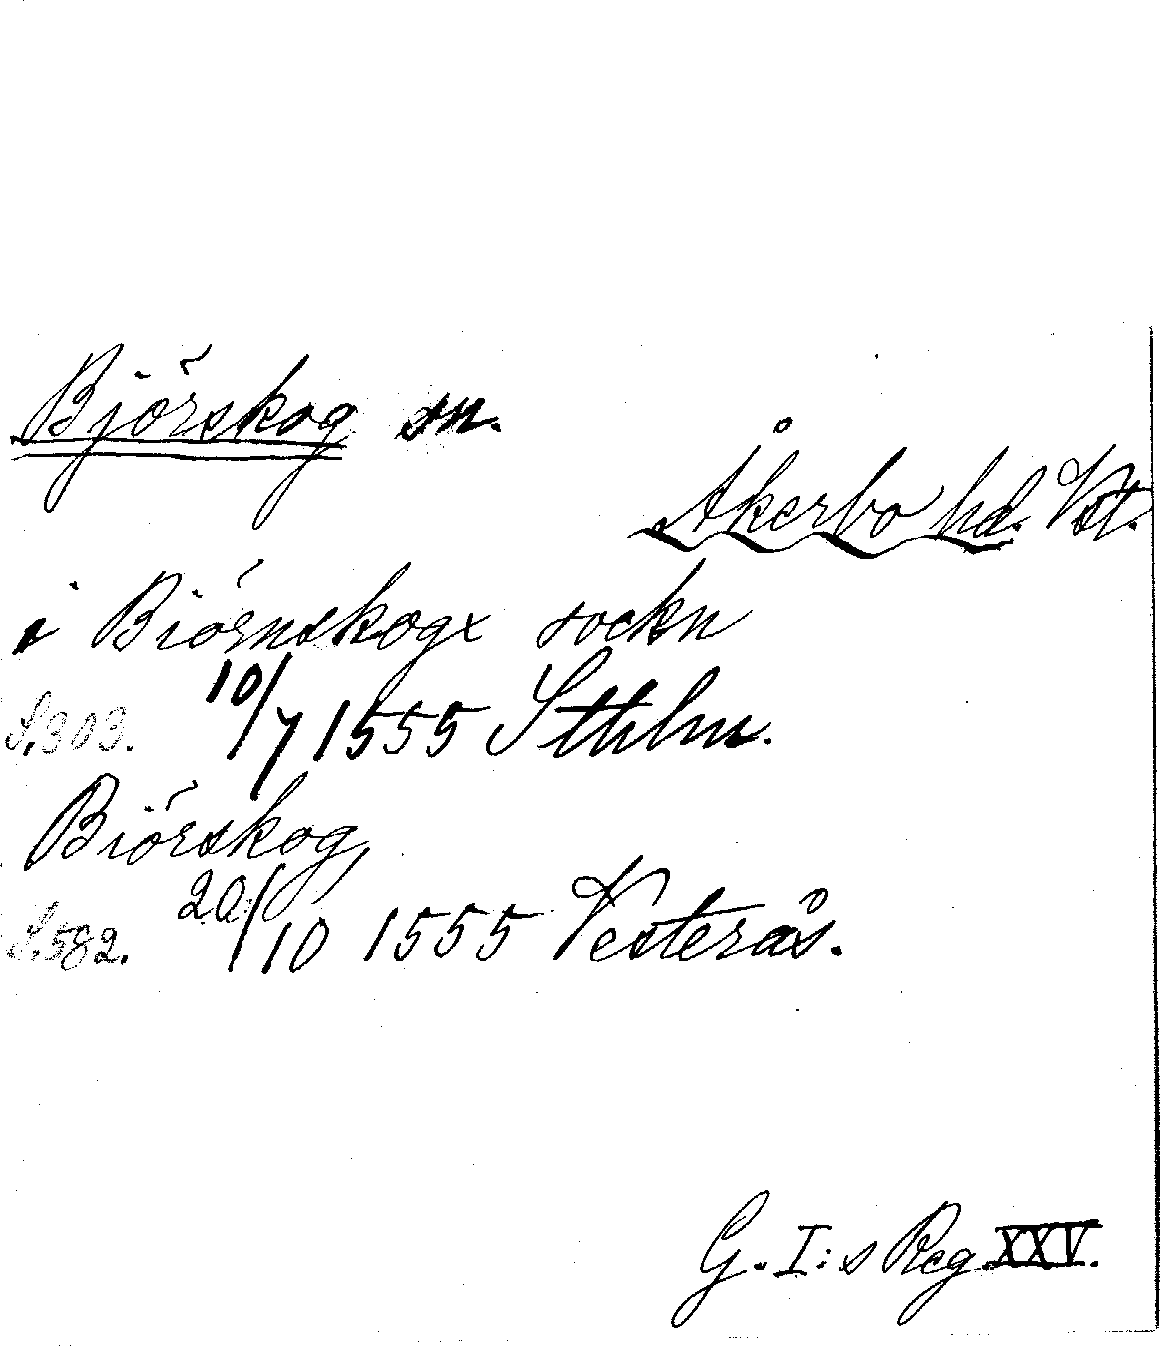 Björskog sn.
Åkerbo hd. Vstm.
i Biörnskogx sockn
S.303. 10/7 1555 Sthlm.
Biörskog,
S.582. 20/10 1555 Vesterås.
G.I:s Reg XXV.